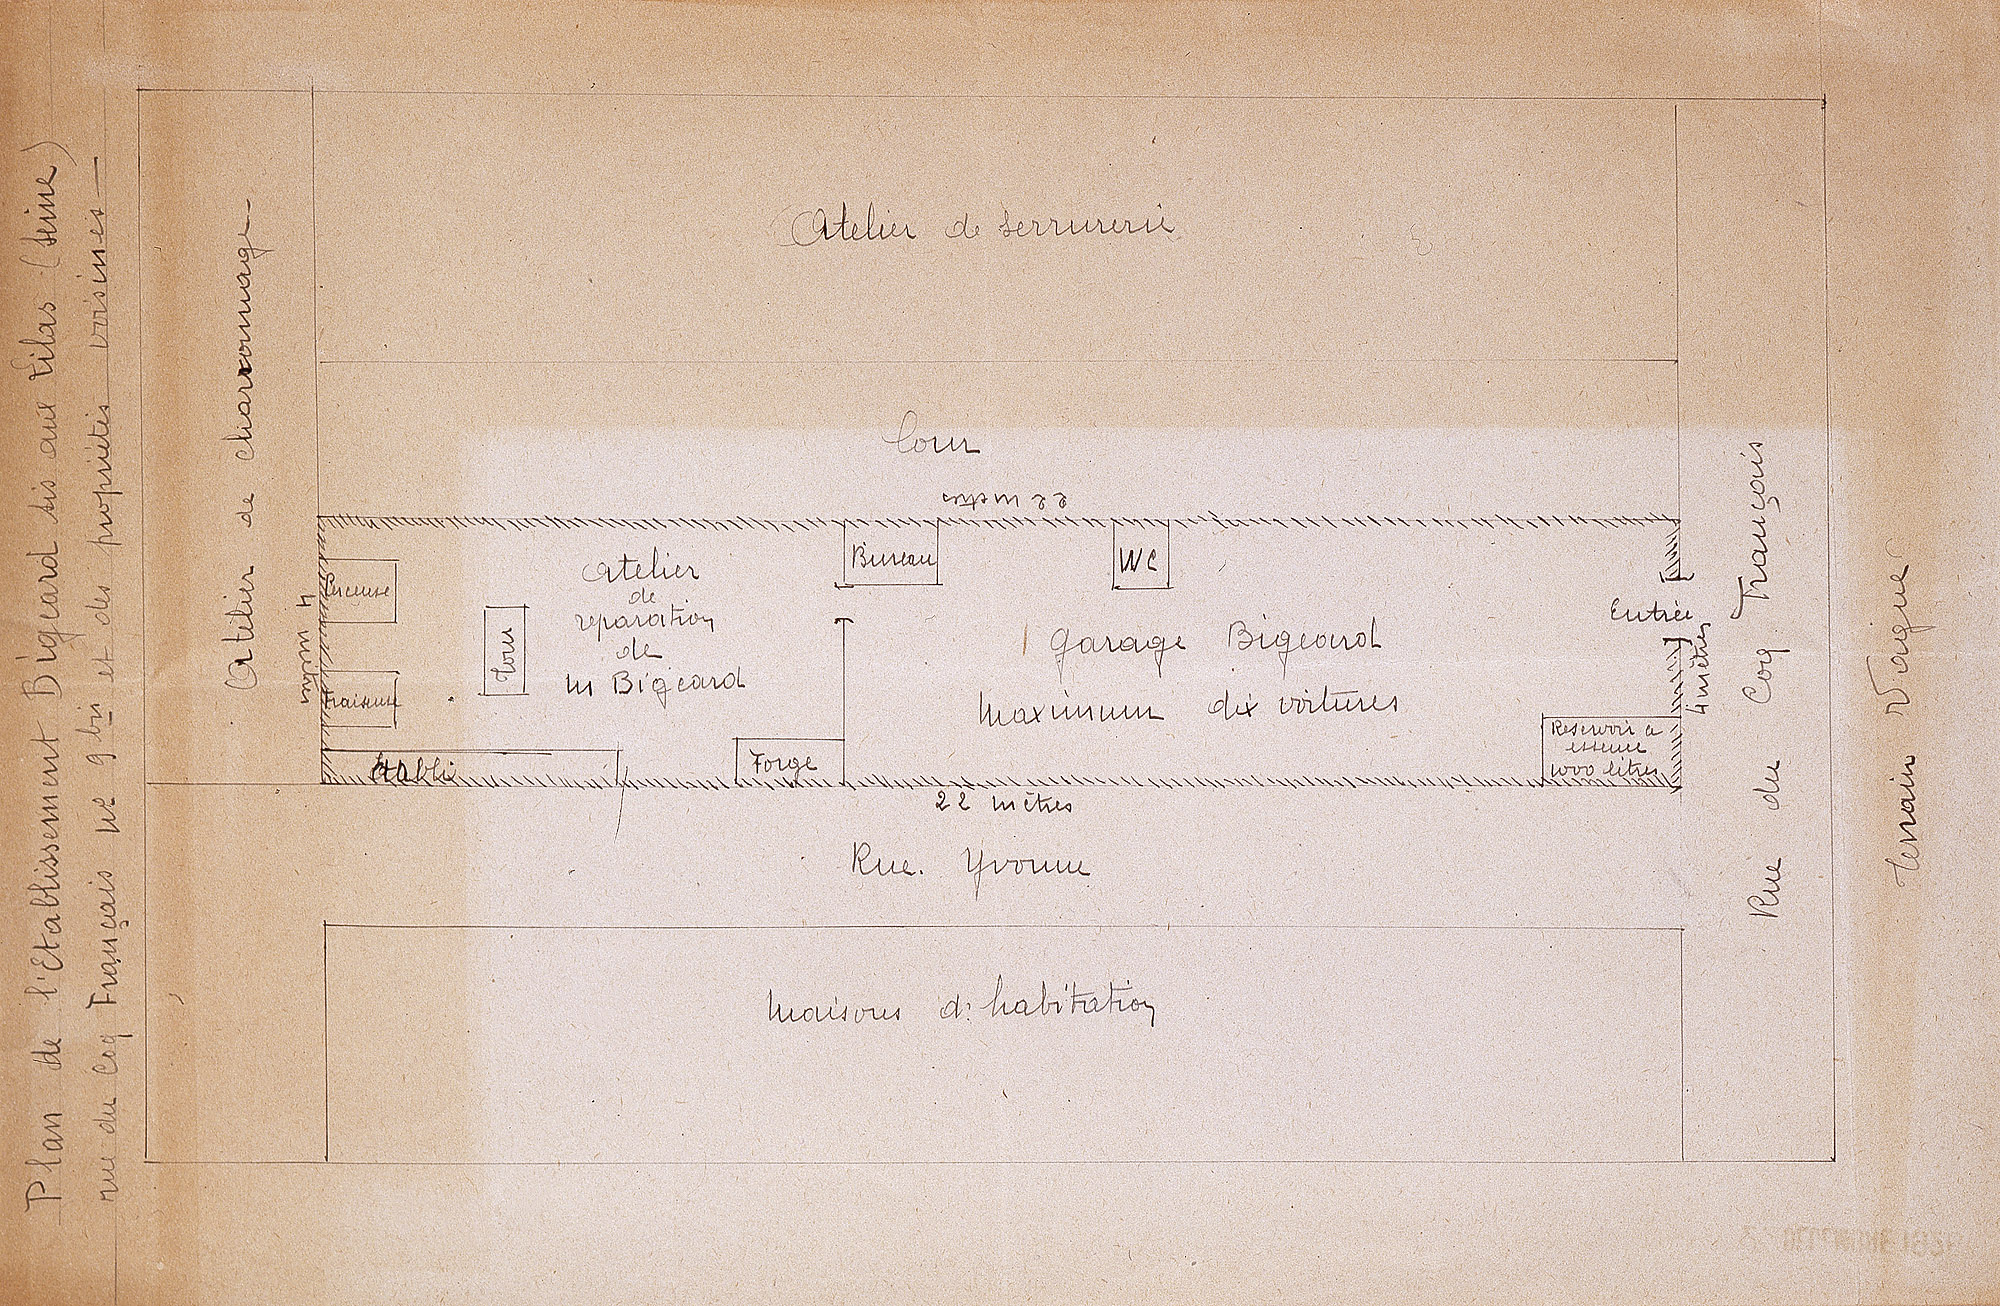 Plan de l'Etablissement Bigeard sis aux Lilas (Seine)
rue du Coq Français n° 9 bis et des propriétés voisines
Atelier de charronnage
Atelier de serrurerie
Cour
22 mètres
4 mètres
Perceuse
Fraiseuse
Etabli
Tour
Atelier
de
reparation
de
M Bigeard
Forge
Bureau
WC
Garage Bigeard
Maximum dix voitures
Entrée
4 mètres
Reservoir à
essence
1000 litres
22 mètres
Rue Yvonne
Maisons d'habitation
Rue du Coq Français
Terrain Vague